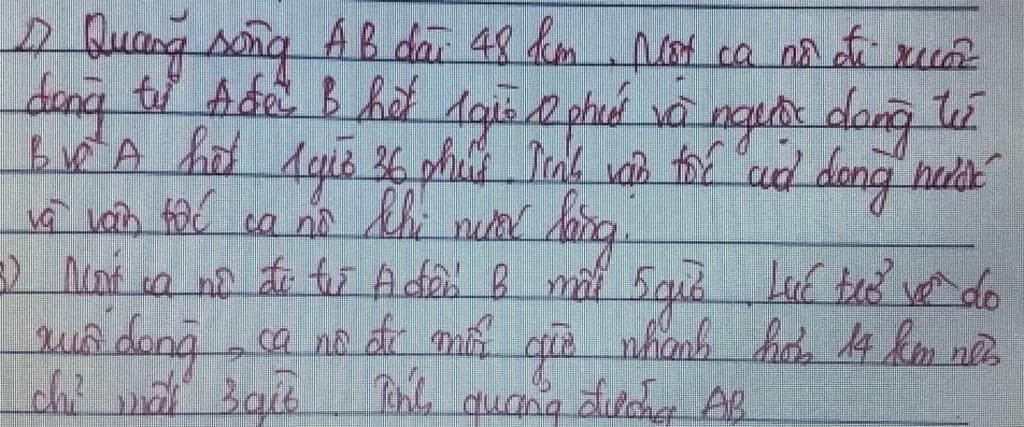 1) Quãng sông AB dài 48 km. Một ca nô đi xuôi
dòng từ A đến B hết 1 giờ 12 phút và ngược dòng từ
B về A hết 1 giờ 36 phút. Tính vận tốc của dòng nước
và vận tốc ca nô khi nước lặng.
) Một ca nô đi từ A đến B mất 5 giờ. Lúc trở về do
xuôi dòng, ca nô đi mỗi giờ nhanh hơn 14 km nên
chỉ mất 3 giờ. Tính quãng đường AB